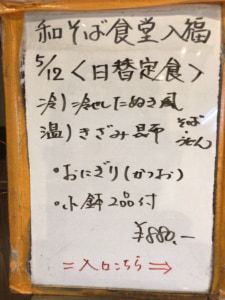 和そば食堂入福
5/12<日替定食>
冷)冷したぬき風
温)きざみ昆布
そば
うどん
・おにぎり(かつお)
・小鉢2品付
¥880.-
=入口こちら⇒